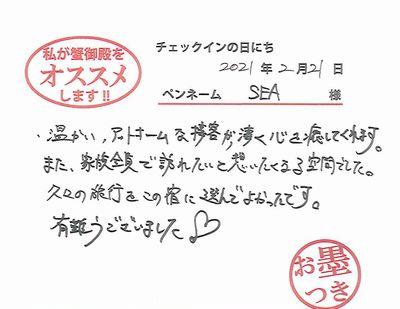 私が蟹御殿を
オススメ
します!!
チェックインの日にち
2021年2月21日
ペンネーム SEA 様
・温かい、アットホームな接客が凄く心を癒してくれます。
また、家族全員で訪れたいと想いたくなる空間でした。
久々の旅行をこの宿に選んでよかったです。
有難うございました♡
お墨
つき